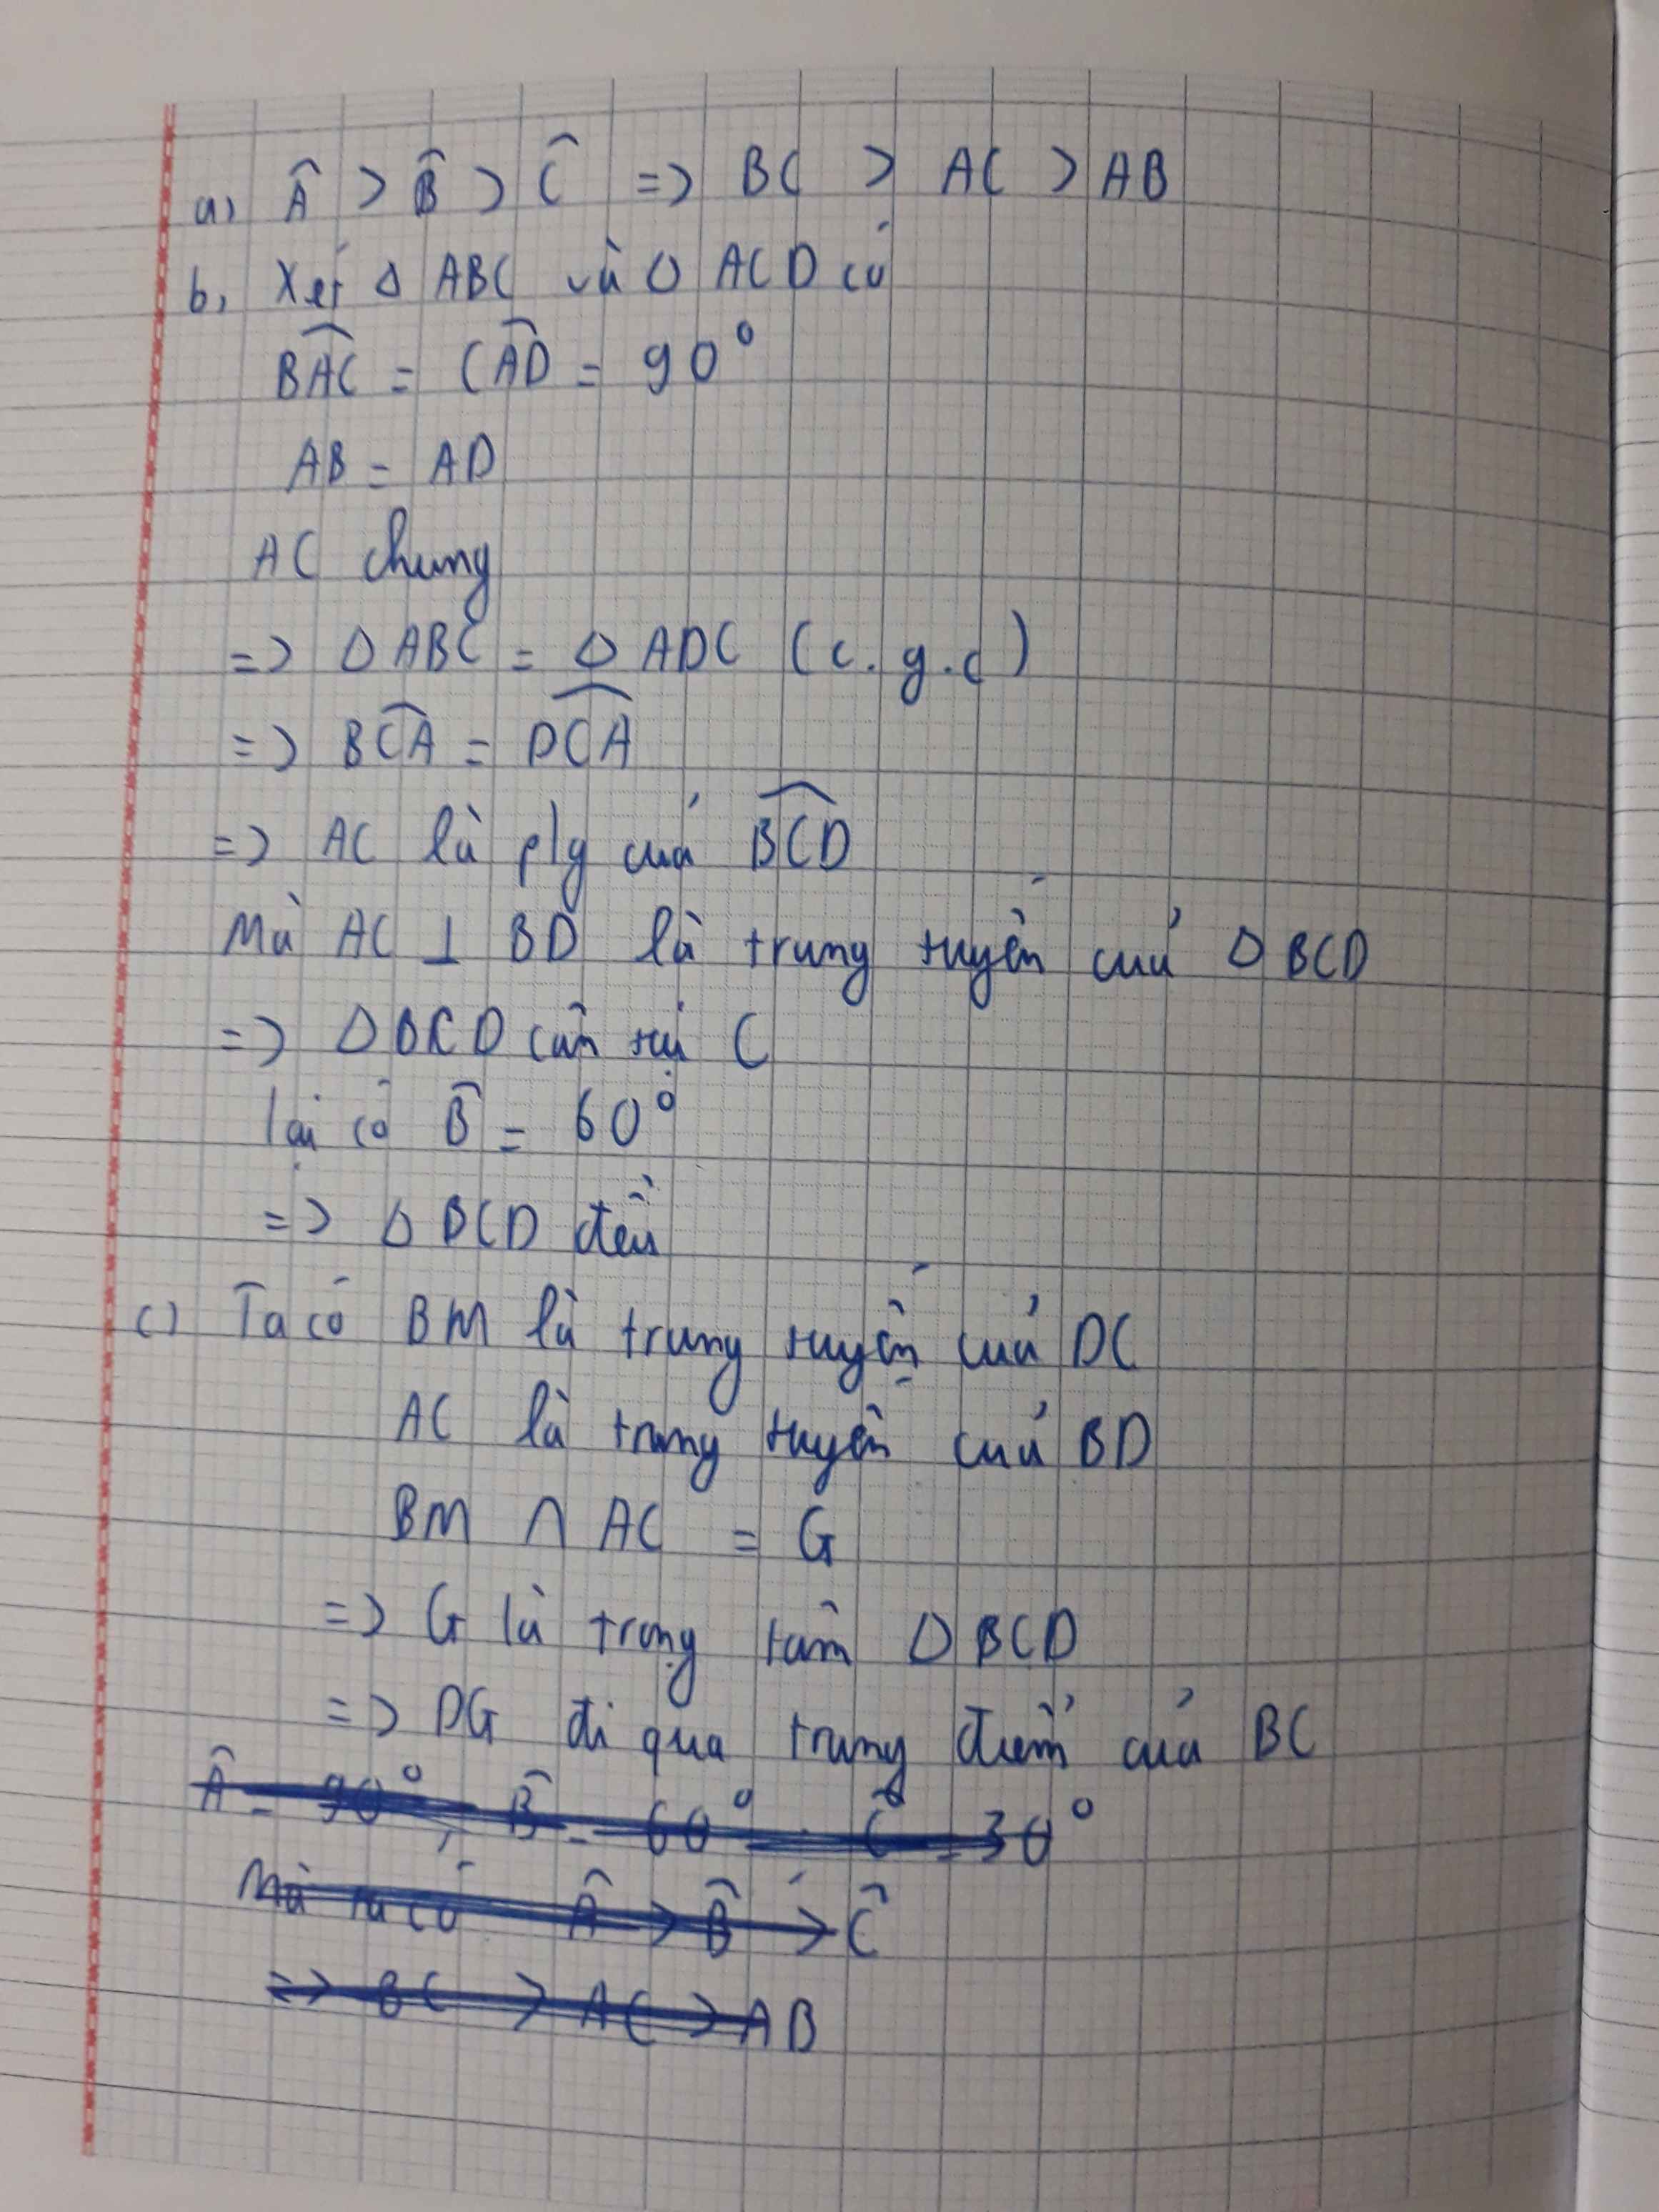 a) Â > B̂ > Ĉ => BC > AC > AB
b, Xét Δ ABC và Δ ACD có
BÂC = CÂD = 90°
AB = AD
AC chung
=> Δ ABC = Δ ADC (c.g.c)
=> BĈA = DĈA
=> AC là p/g của BĈD
Mà AC ⊥ BD là trung tuyến của Δ BCD
=> Δ BCD cân tại C
lại có B̂ = 60°
=> Δ BCD đều
c) Ta có BM là trung tuyến của DC
AC là trung tuyến của BD
BM ∩ AC = G
=> G là trọng tâm Δ BCD
=> DG đi qua trung điểm của BC
Â = 90°, B̂ = 60°, Ĉ = 30°
Mà ta có Â > B̂ > Ĉ
=> BC > AC > AB